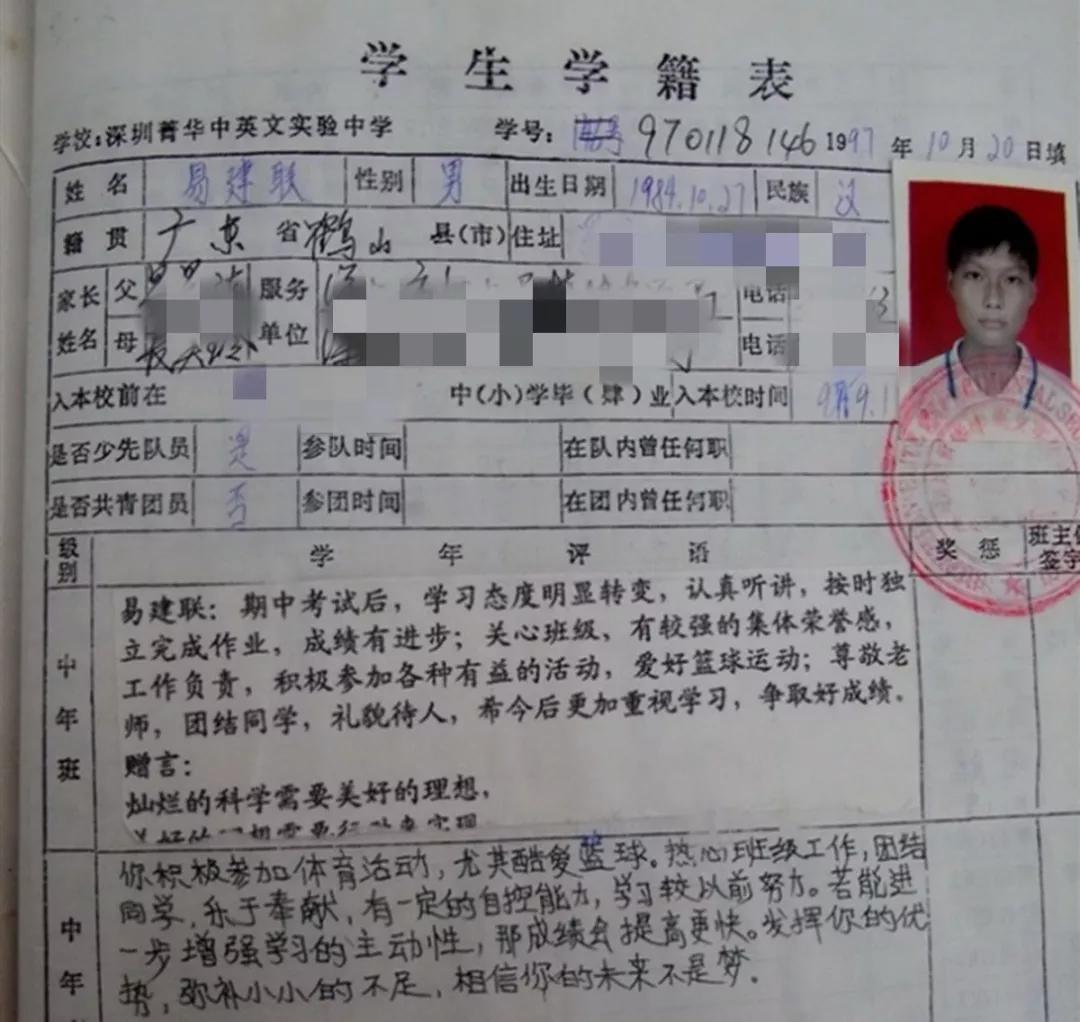 学生学籍表
学校：深圳菁华中英文实验中学 学号： 970118146 1997年10月20日填
姓名 易建联 性别 男 出生日期 1984.10.27 民族 汉
籍贯 广东省鹤山县(市) 住址
家长姓名 父 服务单位 电话
母 电话
入本校前在 中(小)学毕(肄)业 入本校时间 9.1
是否少先队员 是 参队时间 在队内曾任何职
是否共青团员 否 参团时间 在团内曾任何职
级别 学年评语 奖惩 班主任签字
中年班
易建联：期中考试后，学习态度明显转变，认真听讲，按时独
立完成作业，成绩有进步；关心班级，有较强的集体荣誉感，
工作负责，积极参加各种有益的活动，爱好篮球运动；尊敬老
师，团结同学，礼貌待人，希今后更加重视学习，争取好成绩。
赠言：
灿烂的科学需要美好的理想，
中年
你积极参加体育活动，尤其酷爱篮球。热心班级工作，团结
同学，乐于奉献，有一定的自控能力，学习较以前努力。若能进
一步增强学习的主动性，那成绩会提高更快。发挥你的优
势，弥补小小的不足，相信你的未来不是梦．